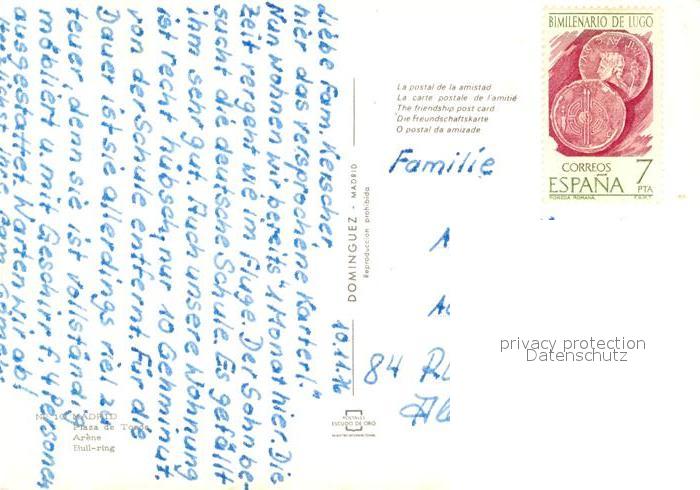 10.11.76
Liebe Fam. Kerscher,
hier das versprochene Karterl."
Nun wohnen wir bereits 1 Monat hier. Die
Zeit vergeht wie im Fluge. Der Sohn be-
sucht die deutsche Schule. Es gefällt
ihm sehr gut. Auch unsere Wohnung
ist recht hübsch, nur 10 Gehminut.
von der Schule entfernt. Für die
Dauer ist sie allerdings viel zu
teuer, denn sie ist vollständig
möbliert u. mit Geschirr f. 4 Personen
ausgestattet. Nun warten wir ab,
Nº 10 MADRID
Plaza de Toros
Arène
Bull-ring
DOMINGUEZ - MADRID
Reproducción prohibida
POSTALES
ESCUDO DE ORO
La postal de la amistad
La carte postale de l'amitié
The friendship post card
Die Freundschaftskarte
O postal da amizade
BIMILENARIO DE LUGO
CORREOS
ESPAÑA 7
PTA
MONEDA ROMANA F.N.M.T.
Familie
84
privacy protection
Datenschutz